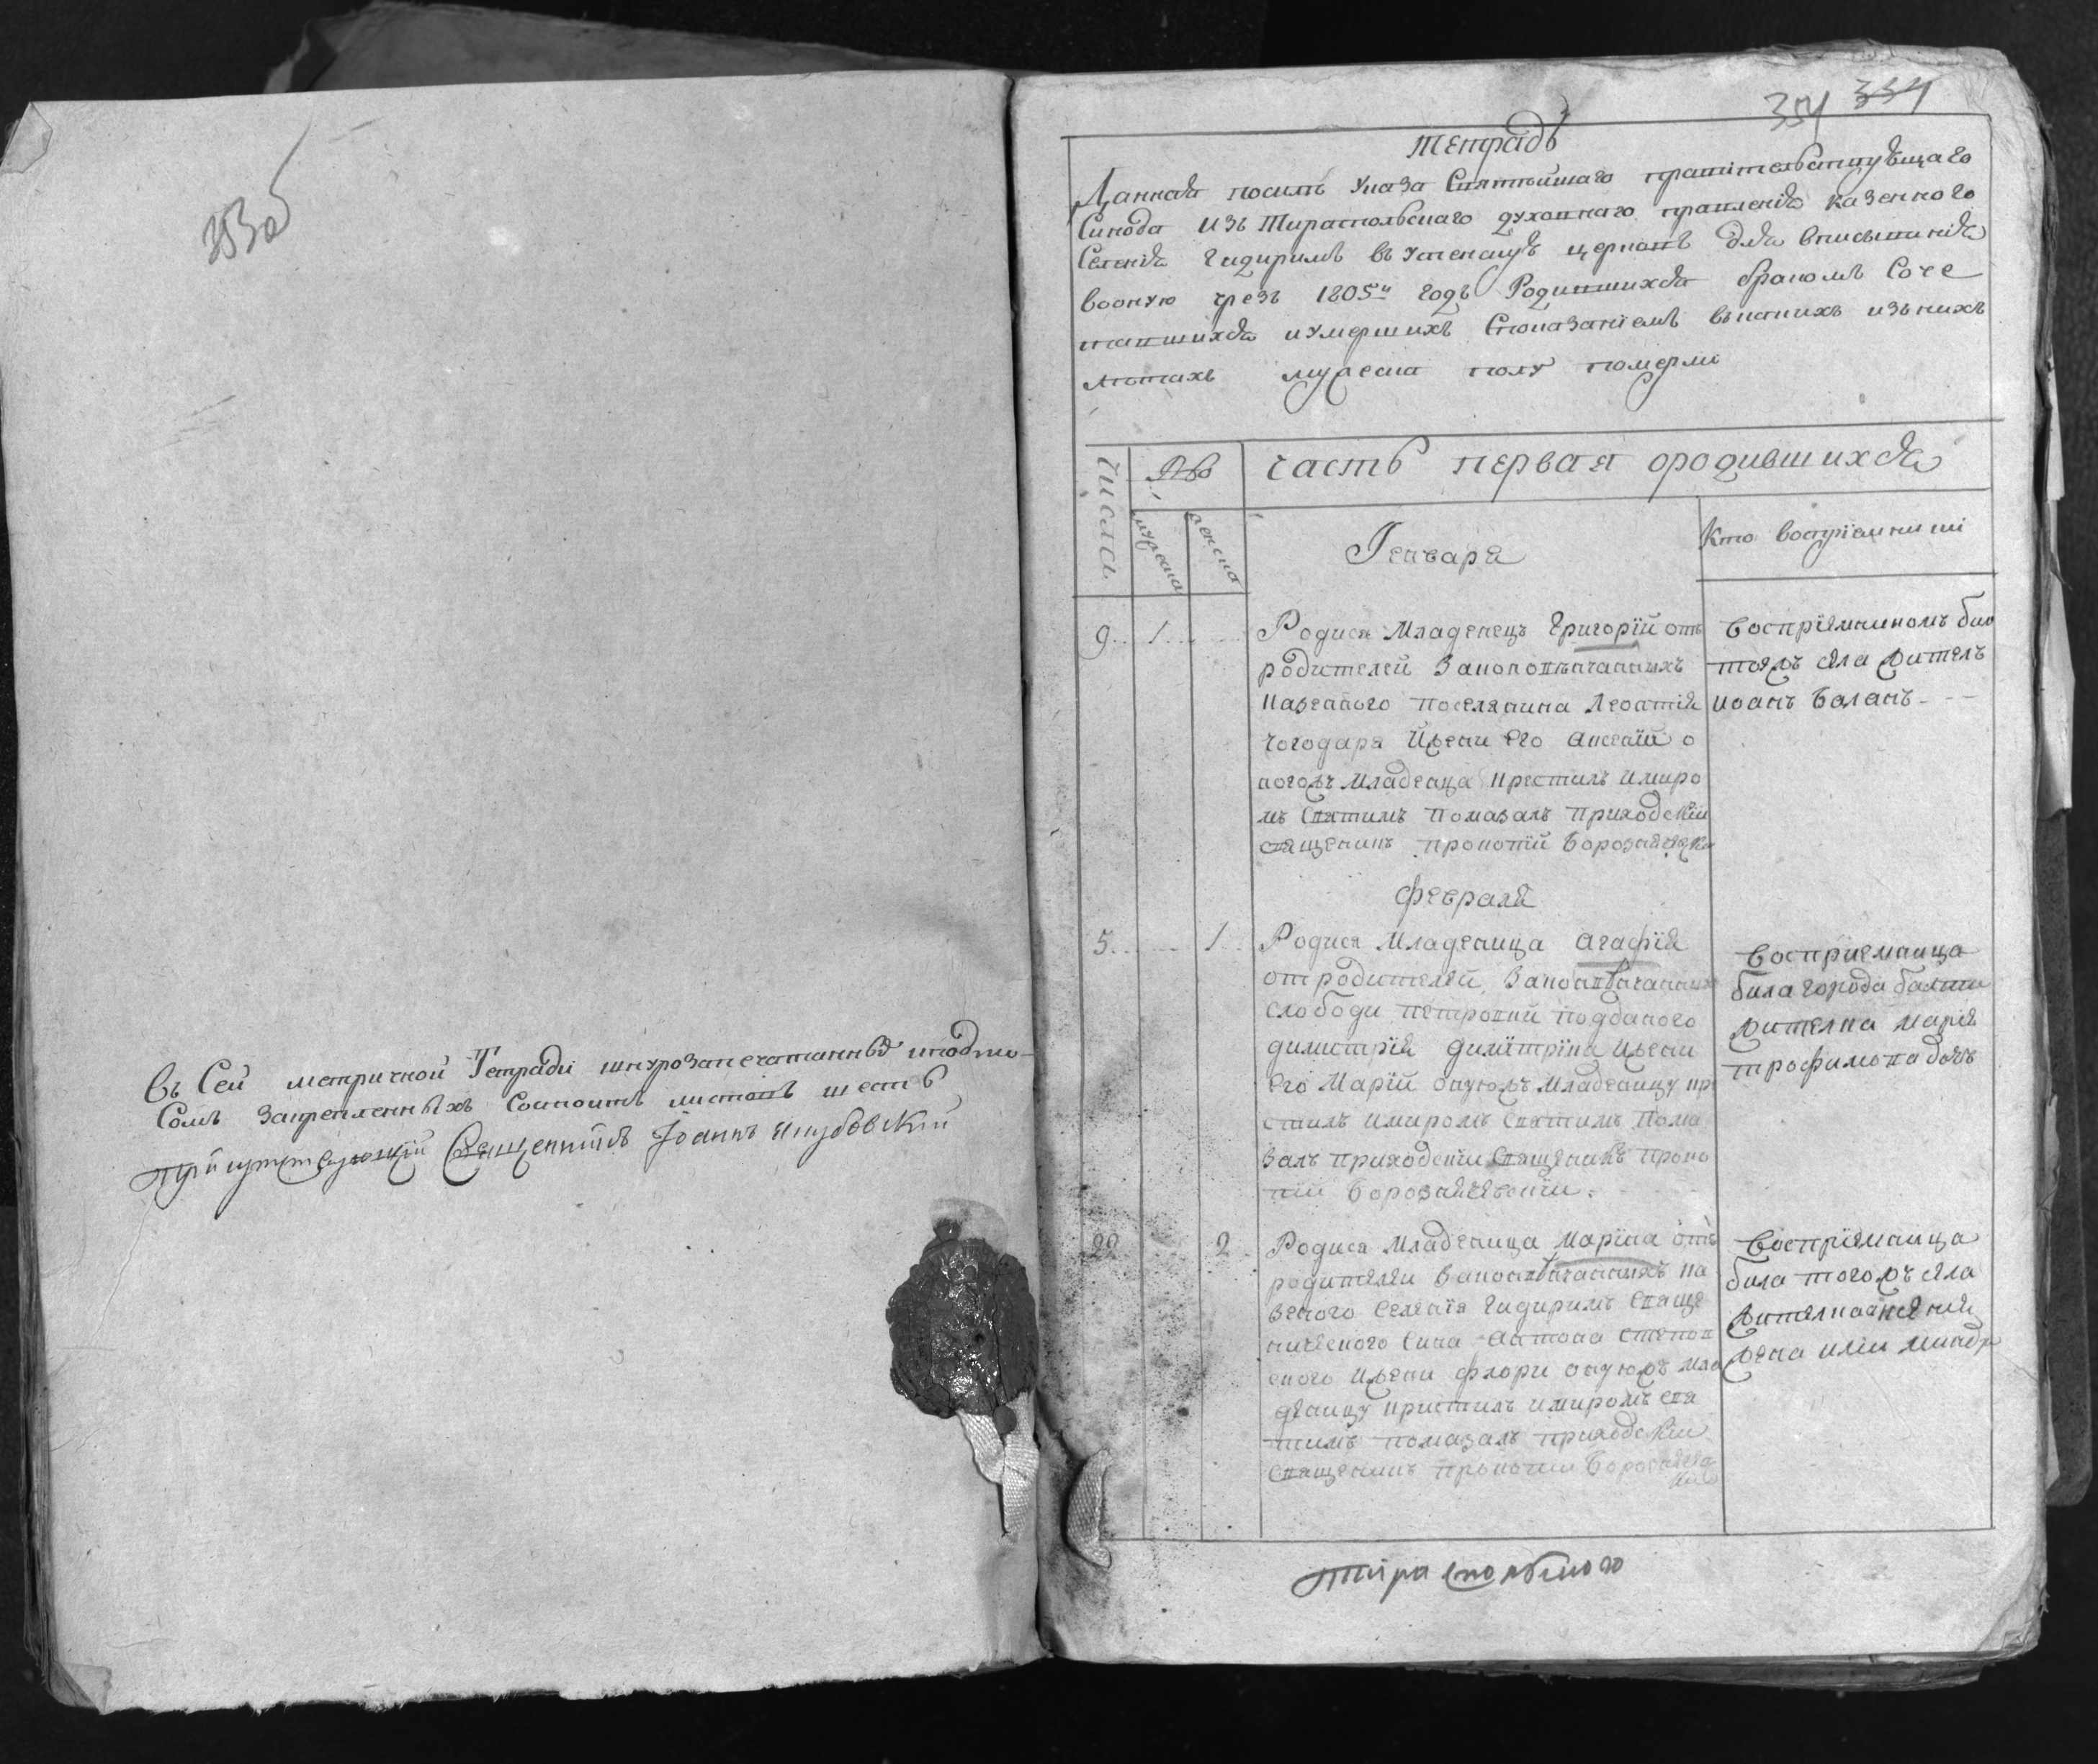 353об
Въ Сей метричной Тетради шнурозапечатанныя иподпи-
Сомъ Закрепленныхъ Состоитъ листовъ шесть
присутствующий Священникъ Іоаннъ Якубовский
354 354
Тетрадь
Данная посилѣ Указа Святѣйшаго правителствующаго
Синода изъ Тираспольскаго духовнаго правления казенного
Селения Гидиримъ въ Успенскую церковъ для вписывания
вооную чрезъ 1805й годъ Родившихся бракомъ Соче
тавшихся иумершихъ Спопазаніемъ въкакихъ изънихъ
лѣтахъ мужеска полу померли
Числа
мужеска
женска
часть первая ородившихся
Генваря
Кто воспріемники
9 1
Родися Младенецъ Григорій отъ
родителей Законовѣнчанныхъ
казенного поселянина Леонтія
Чогодаря Ижени Его Ксений о
ногожъ младенца крестилъ имиро
мъ Святимъ помазалъ приходскій
священикъ прокопій
Воспріемникомъ бил
тоежъ села жителъ
иоанъ Баланъ
Февраля
5 1
Родися младеница Агафія
отродителей Законовѣнчанныхъ
слободи петровки подданого
димитрія димитріва ижени
его Марій онуюжъ младеницу кре
стилъ имиромъ Святимъ Пома
залъ приходский Священикъ проко
пий
Восприемница
била города балти
жителка Марія
трофимова дочъ
22 2
Родися Младеница Маріна отъ
родителей Законовѣнчанихъ ка
зеного селения Гидиримъ Свяще
нического Сина Антона степов
ского Ижени флори онуюжъ мла
деницу кристилъ имиромъ свя
тимъ помазалъ приходский
Священикъ прокопий
Воспріемница
била тогожъ села
жителка
жена
Тираспольского